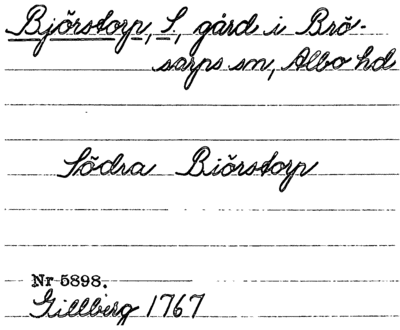 Björstorp, S., gård i Brö-
sarps sn, Albo hd
Södra Biörstorp
Nr 5898.
Gillberg 1767